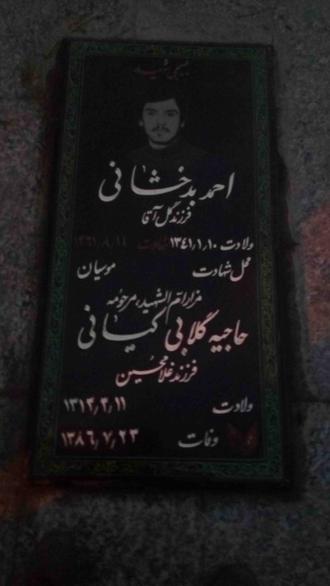 بسیجی شهید
احمد بدخشانی
فرزند گل آقا
ولادت ۱۳۴۱٫۱٫۱۰ شهادت ۱۳۶۱٫۸٫۱۱
محل شهادت موسیان
مزار ام الشهید، مرحومه
حاجیه گلابی کیانی
فرزند غلامحسین
ولادت ۱۳۱۴٫۴٫۱۱
وفات ۱۳۸۶٫۷٫۲۳